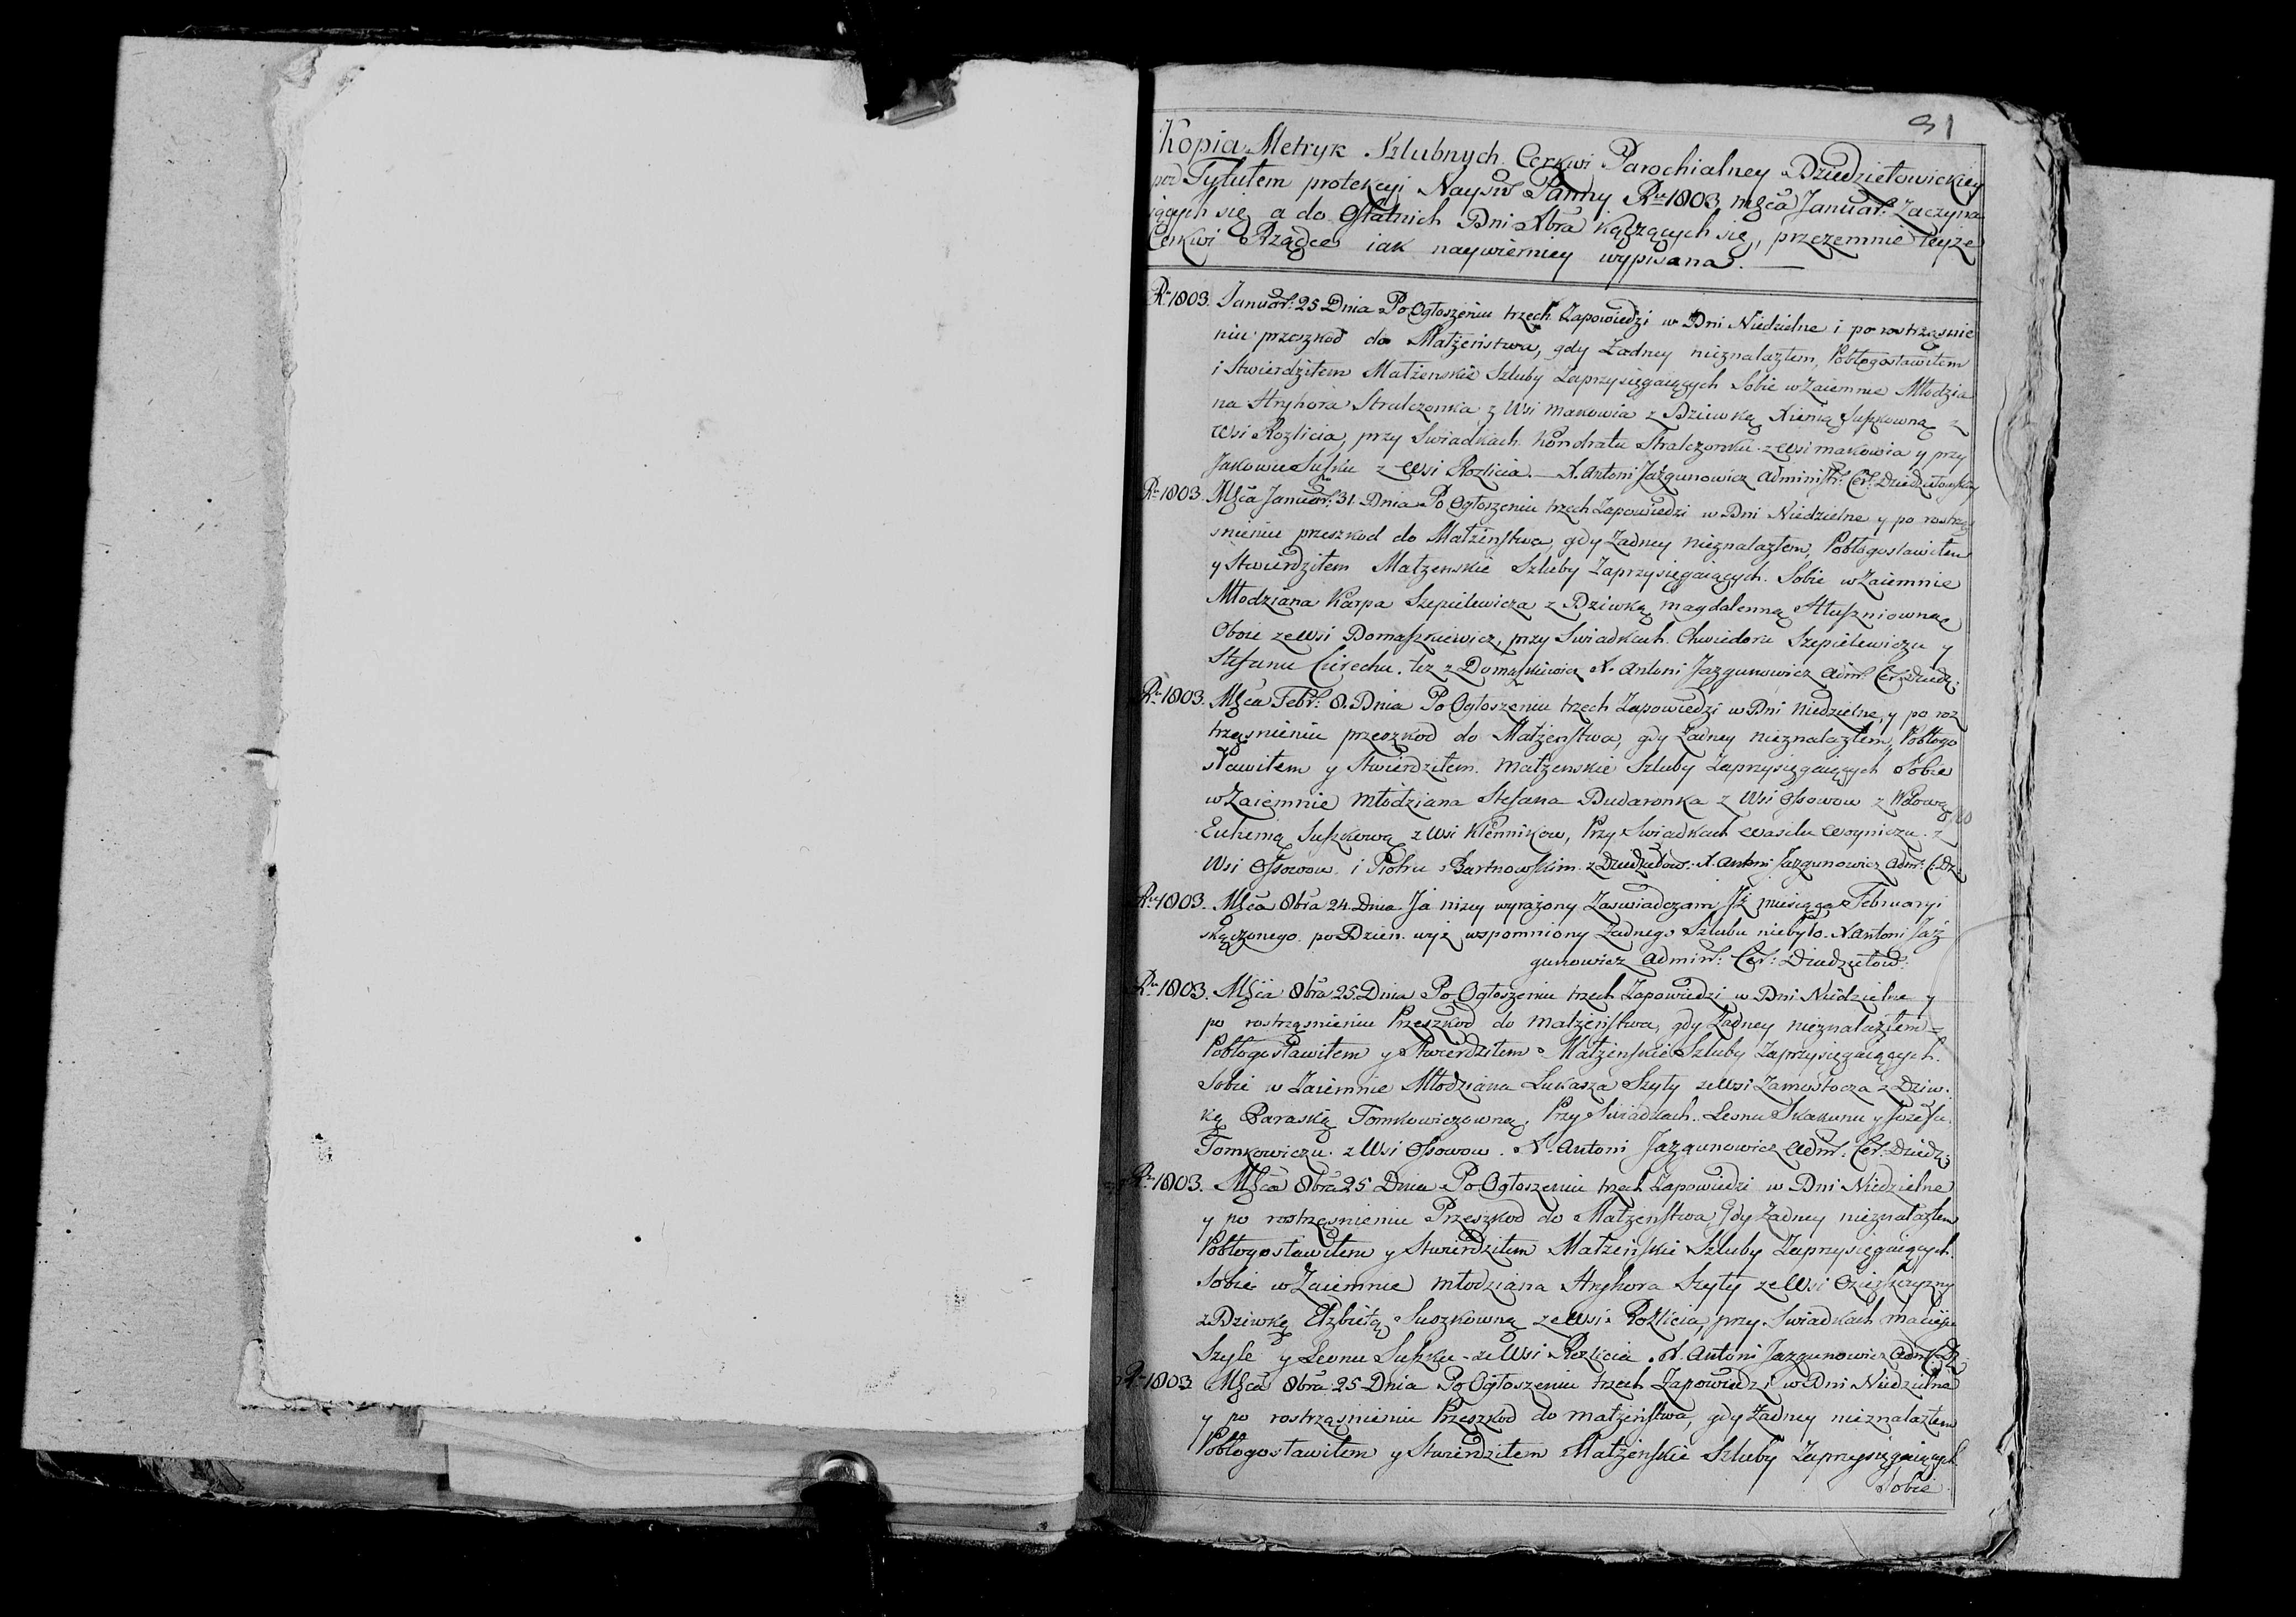 31
Kopia Metryk Szlubnych Cerkwi Parochialney Dziedziełowickiey
pod Tytułem protekcyi Nayśw Panny Ru 1803 mśca Januar: Zaczyna
iących się a do Ostatnich Dni Xbra kączących się, przezemnie teyże
Cerkwi Rządce iak naywierniey wypisana.
Ru 1803. Januar: 25 Dnia Po Ogłoszeniu trzech Zapowiedzi w Dni Niedzielne i po rostrząśnie
niu przeszkod do Małżeństwa, gdy Żadney nieznalazłem, Pobłogosławiłem
i Stwierdziłem Małżenskie Szluby Zaprzysięgaiących Sobie wZaiemnie Młodzia
na Hryhora Stralczonka z Wsi Makowia z Dziewką Xienią Suszkowną z
Wsi Rozlicia, przy Swiadkach Kondratu Stralczonku z Wsi makowia y przy
Jakowu Suszku z Wsi Rozlicia. X. Antoni Jazgunowicz Administr: Cer: Dziedziełowickiey
Ru 1803. Mśca Januar: 31. Dnia Po Ogłoszeniu trzech Zapowiedzi w Dni Niedzielne y po rostrzą
snieniu przeszkod do Małżeństwa, gdy Żadney nieznalazłem, Pobłogosławiłem
y Stwierdziłem Małzenskie Szluby Zaprzysięgaiących Sobie wZaiemnie
Młodziana Karpa Szepielewicza z Dziwką magdalenną Hłuszniowną
Oboie zeWsi Domaszkiewicz, przy Swiadkach Chwiedoru Szepielewiczu y
Stefanu tez z Domaszkiewicz X. Antoni Jazgunowicz Adm: Cer: Dziedz:
Ru 1803. Mśca Febr: 8. Dnia Po Ogłoszeniu trzech Zapowiedzi w Dni Niedzielne, y po roz
trząsnieniu przeszkod do Małżeństwa, gdy Żadney nieznalazłem, Pobłogo
sławiłem y Stwierdziłem małżenskie Szluby Zaprzysięgaiących Sobie
wZaiemnie młodziana Stefana Dudaronka z Wsi Ossowow z Wdową
Euhenią Suszkową z Wsi Klennikow, Przy Swiadkach Wasilu Woyniczu z
Wsi Ossowow i Piotru Bartnowskim z Dziedziełow: X. Antoni Jazgunowicz Adm: C: Dz:
Ru 1803. Mśca 8bra 24. Dnia Ja nizey wyrażony Zaswiadczam Jż miesiąca Februaryi
skączonego po Dzien wyż wspomniony Żadnego Szlubu niebyło. X. Antoni Jaz
gunowicz Admin: Cer: Dziedziełow:
Ru 1803. Mśca 8bra 25. Dnia Po Ogłoszeniu trzech Zapowiedzi w Dni Niedzielne y
po rostrząsnieniu Przeszkod do małżeństwa, gdy Żadney nieznalazłem
Pobłogosławiłem y Stwierdziłem Małżeńskie Szluby Zaprzysięgaiących
Sobie w Zaiemnie Młodziana Lukasza Szyły zeWsi Zamostocza z Dziw
ką Paraską Tomkowiczowną, Przy Swiadkach Leonu Skakunu y Jozefu
Tomkowiczu z Wsi Ossowow. X. Antoni Jazgunowicz Adm: Cer: Dziedz:
Ru 1803. Mśca 8bra 25 Dnia Po Ogłoszeniu trzech Zapowiedzi w Dni Niedzielne
y po rostrząsnieniu Przeszkod do Małżeństwa, Gdy Żadney nieznalazłem
Pobłogosławiłem y Stwierdziłem Małżeńskie Szluby Zaprzysięgaiących
Sobie wZaiemnie młodziana Hryhora Szyły zeWsi
z Dziwką Elzbietą Suszkowną zeWsi Rozlicia, przy Swiadkach macieju
Szyle y Leonu Suszku zeWsi Rozlicia. X. Antoni Jazgunowicz Adm: C: Dz:
Ru 1803 Mśca 8bra 25 Dnia Po Ogłoszeniu trzech Zapowiedzi w Dni Niedzielne
y po rostrząsnieniu Przeszkod do małżeństwa, gdy Żadney nieznalazłem
Pobłogosławiłem y Stwierdziłem Małżeńskie Szluby Zaprzysięgaiących
Sobie